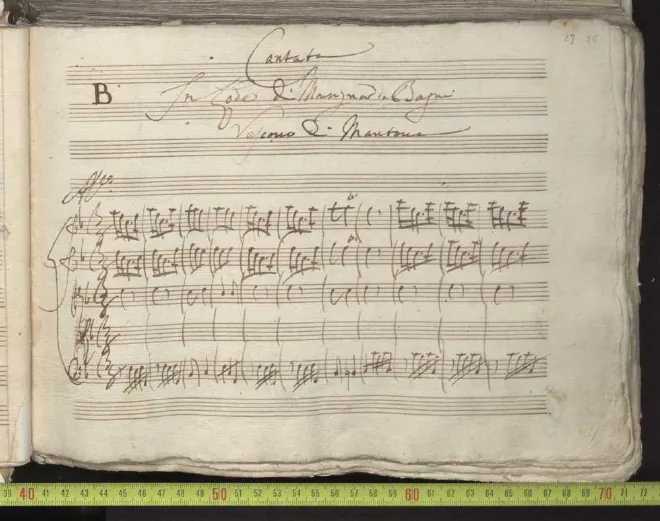 27 26
Cantata
B
In Lode di Monsignor Bagni
Vescovo di Mantova
All.o
39 40 41 42 43 44 45 46 47 48 49 50 51 52 53 54 55 56 57 58 59 60 61 62 63 64 65 66 67 68 69 70 71 72